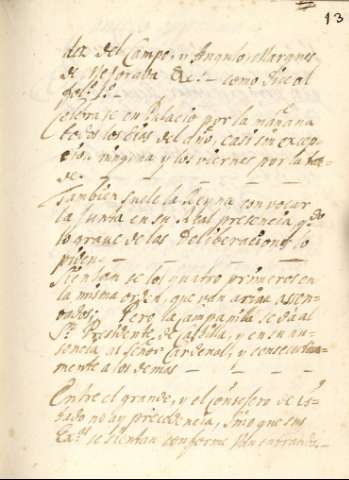 13
dez del Campo, y Angulo, Marques
de Mejorada &c.ª — como fiscal
Celebrase en Palacio por la mañana
todos los dias del año, casi sin excep-
cion ninguna y los viernes por la tar-
de. — — — —
Tambien suele la Reyna convocar
la Junta en su Real presencia q.do
lo graue de las Deliberaciones, lo
piden —
Sientan se los quatro primeros en
la misma orden, que van arriua assen-
tados; Pero la campanilla se da al
S.r Presidente de Castilla, y en su au-
sencia al señor Cardenal, y consecutiua-
mente a los demas — — —
Entre el grande, y el consejero de Es-
tado no ay precedencia, sino que sus
Ex.as se sientan conforme van entrando —